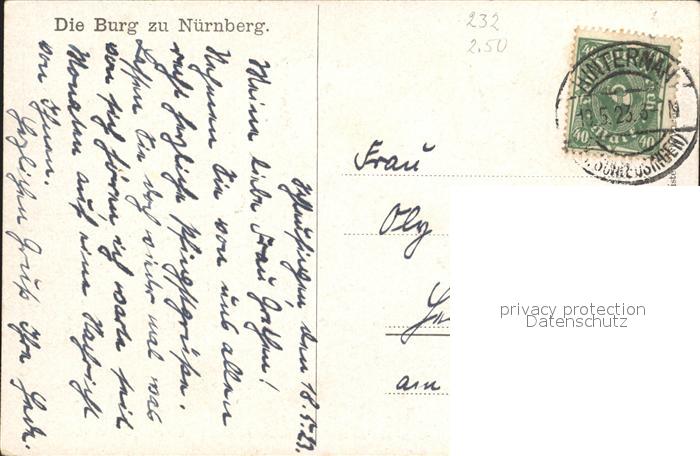 Die Burg zu Nürnberg.
232
2.50
Schleusingen den 18.5.23.
Meine liebe Frau
Nehmen Sie von uns allen
recht herzliche Pfingstgrüße.
Lassen Sie doch wieder mal was
von sich hören, ich warte seit
Monaten auf eine Nachricht
von Ihnen.
Herzlichen Gruß Ihre
Frau
Olg
am
HINTERNAH
5.23.
(SCHLEUSINGEN)
40 40
privacy protection
Datenschutz